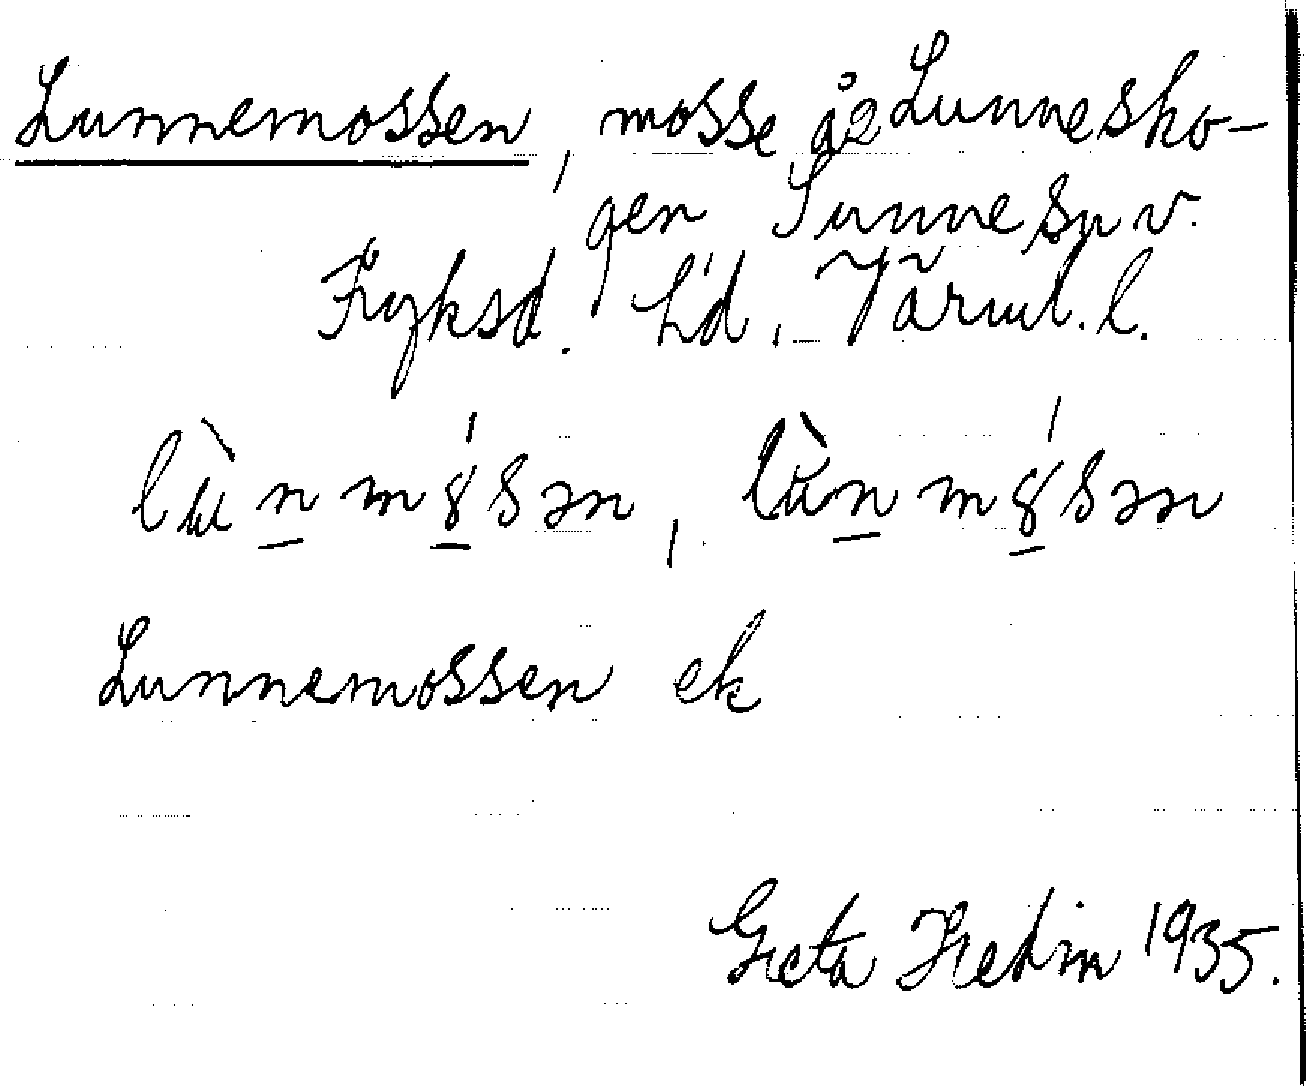 Lunnemossen, mosse å2 Lunnesko-
gen Sunne sn v.
Fryksd. hd. Värml. l.
lùn mɵ́sən, lùn mɵ́sən
Lunnemossen ek
Greta Hedin 1935.